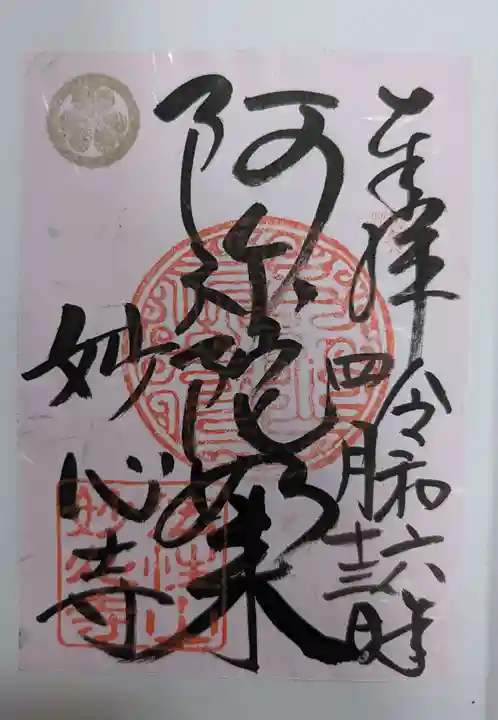 奉拝
令和六年
四月十三日
阿弥陀如来
妙心寺